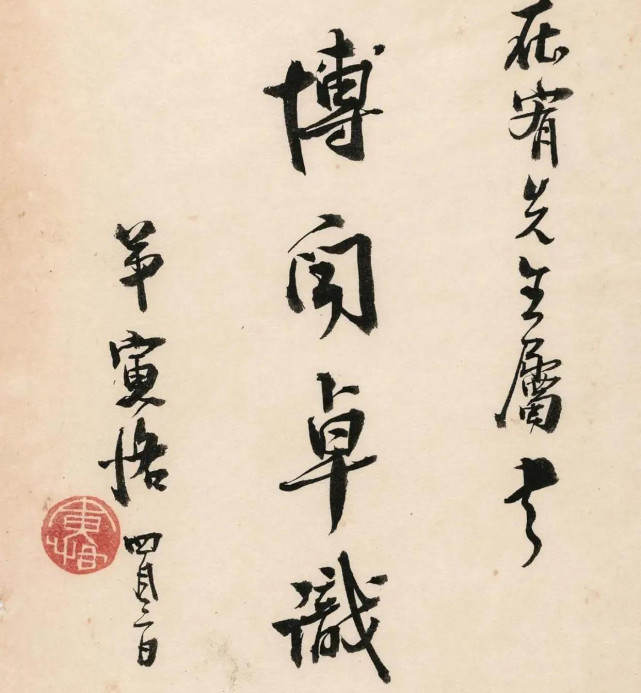 在宥先生屬書
博聞卓識
弟寅恪 四月日
寅恪